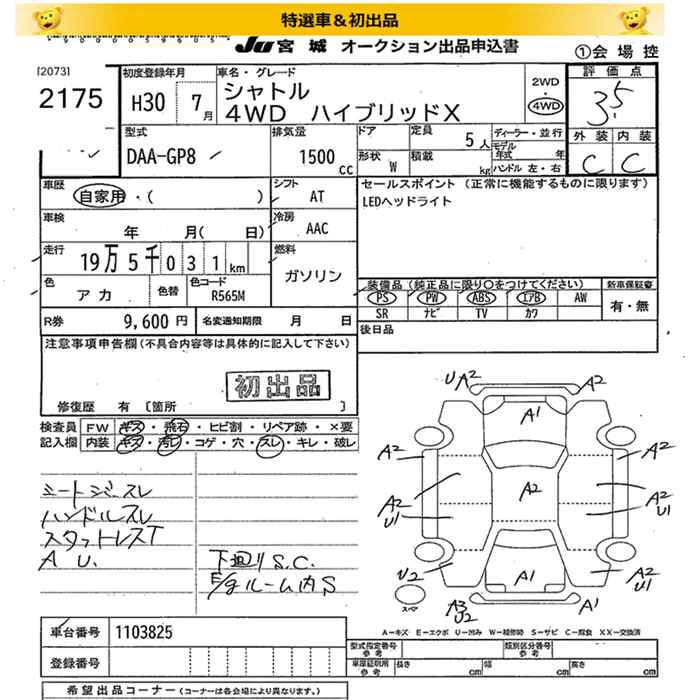 特選車＆初出品
Ju 宮城 オークション出品申込書
①会場控
[2073]
2175
初度登録年月
H30 7月
車名・グレード
シャトル
4WD ハイブリッドX
2WD
・
4WD
評価点
3.5
外装 内装
C C
型式
DAA-GP8
排気量
1500 cc
ドア
定員
5人
形状
W
積載
kg
ディーラー・並行
モデル
年式 年
ハンドル 左・右
車歴
自家用・( )
シフト
AT
セールスポイント (正常に機能するものに限ります)
LEDヘッドライト
車検
年 月( 日)
冷房
AAC
走行
19万5千031km
燃料
ガソリン
色
アカ
色替
色コード
R565M
装備品 (純正品に限り○をつけてください)
PS PW ABS エアB AW
SR ナビ TV カワ
新車保証書
有・無
R券
9,600円
名変通知期限 月 日
後日品
注意事項申告欄 (不具合内容等は具体的に記入して下さい)
初出品
修復歴 有 [箇所 ]
検査員
記入欄
FW キズ・飛石・ヒビ割・リペア跡・×要
内装 キズ・汚レ・コゲ・穴・スレ・キレ・破レ
シートジースレ
ハンドルスレ
スタットレスT
A U.
下回りS.C.
E/gルーム内S
UA2
A2
A1
A2
A2
A2
A2
U1
A2
U1
A2
U2
A1
A2
U1
スペア
A3
U2
A1
A－キズ E－エクボ U－凹み W－補修跡 S－サビ C－腐食 XX－交換済
車台番号
1103825
登録番号
型式指定番号
参考
類別区分番号
参考
車庫証明用
参考
長さ cm
幅 cm
高さ cm
希望出品コーナー (コーナーは各会場により異なります。)